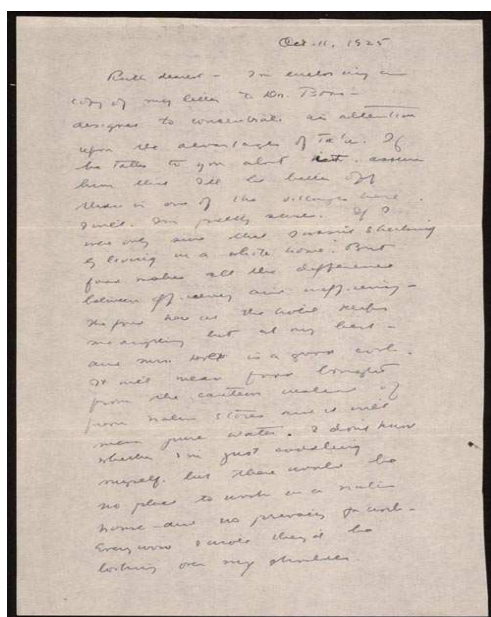 Oct. 11, 1925
Ruth dearest – I'm enclosing a
copy of my letter to Dr. Boas –
designed to concentrate his attention
upon the advantages of Ta'u. If
he talks to you about it, assure
him that I'll be better off
than in one of the villages here.
I will. I'm pretty sure. If I
was only sure that I wasn't shirking
by living in a white home! But
food makes all the difference
between efficiency and inefficiency –
The food here at the hotel keeps
me anything but at my best –
and Mrs. Holt is a good cook.
It will mean food bought
from the canteen instead of
from native stores and it will
mean pure water. I don't know
whether I'm just coddling
myself. but there would be
no place to work in a native
home – and no privacy for work –
Every word I wrote they'd be
looking over my shoulder